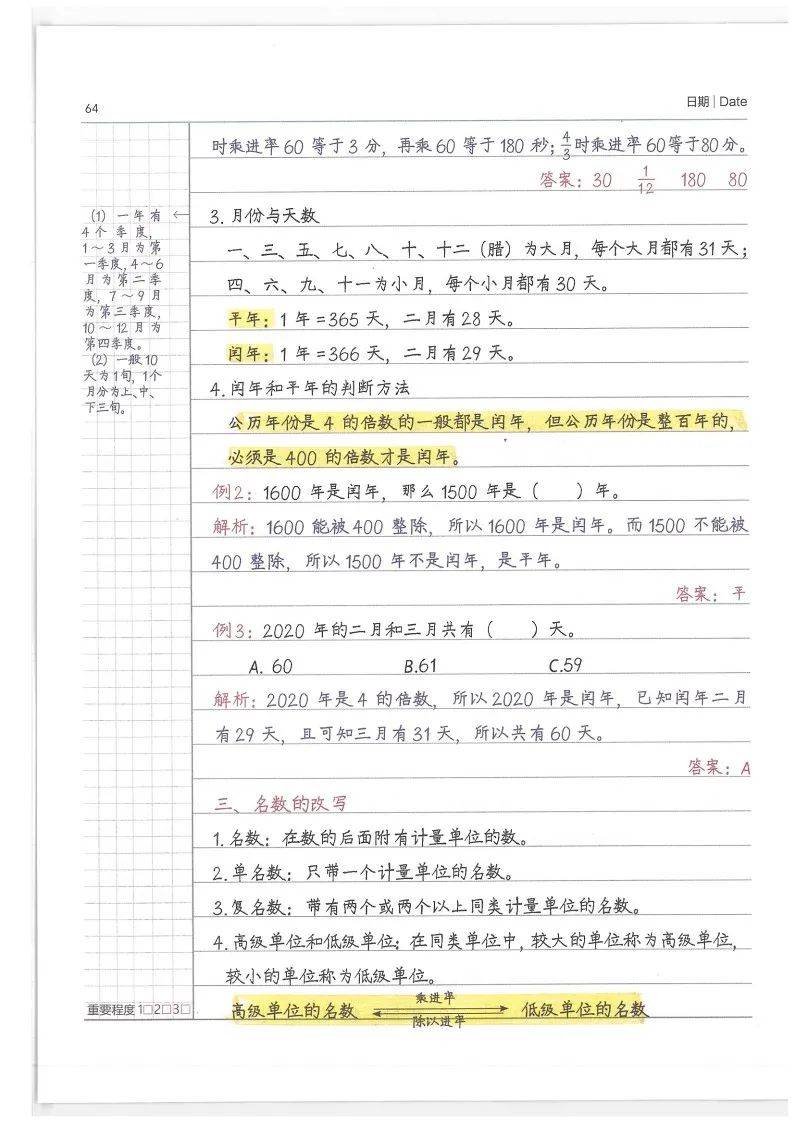 64
日期 | Date
时乘进率60 等于3 分，再乘60 等于180 秒；4/3时乘进率60等于80分。
答案：30 1/12 180 80
(1) 一年有
4个季度，
1～3月为第
一季度，4～6
月为第二季
度，7～9月
为第三季度，
10～12月为
第四季度。
(2) 一般10
天为1旬，1个
月分为上、中、
下三旬。
←
3. 月份与天数
一、三、五、七、八、十、十二（腊）为大月，每个大月都有31天；
四、六、九、十一为小月，每个小月都有30 天。
平年：1 年=365 天，二月有28 天。
闰年：1 年=366 天，二月有29 天。
4. 闰年和平年的判断方法
公历年份是4 的倍数的一般都是闰年，但公历年份是整百年的，
必须是400 的倍数才是闰年。
例2：1600 年是闰年，那么1500 年是（ ）年。
解析：1600 能被400 整除，所以1600 年是闰年。而1500 不能被
400 整除，所以1500 年不是闰年，是平年。
答案：平
例3：2020 年的二月和三月共有（ ）天。
A. 60 B.61 C.59
解析：2020 年是4 的倍数，所以2020 年是闰年，已知闰年二月
有29 天，且可知三月有31 天，所以共有60 天。
答案：A
三、名数的改写
1. 名数：在数的后面附有计量单位的数。
2. 单名数：只带一个计量单位的名数。
3. 复名数：带有两个或两个以上同类计量单位的名数。
4. 高级单位和低级单位：在同类单位中，较大的单位称为高级单位，
较小的单位称为低级单位。
乘进率
高级单位的名数 ⇌ 低级单位的名数
除以进率
重要程度 1□2□3□